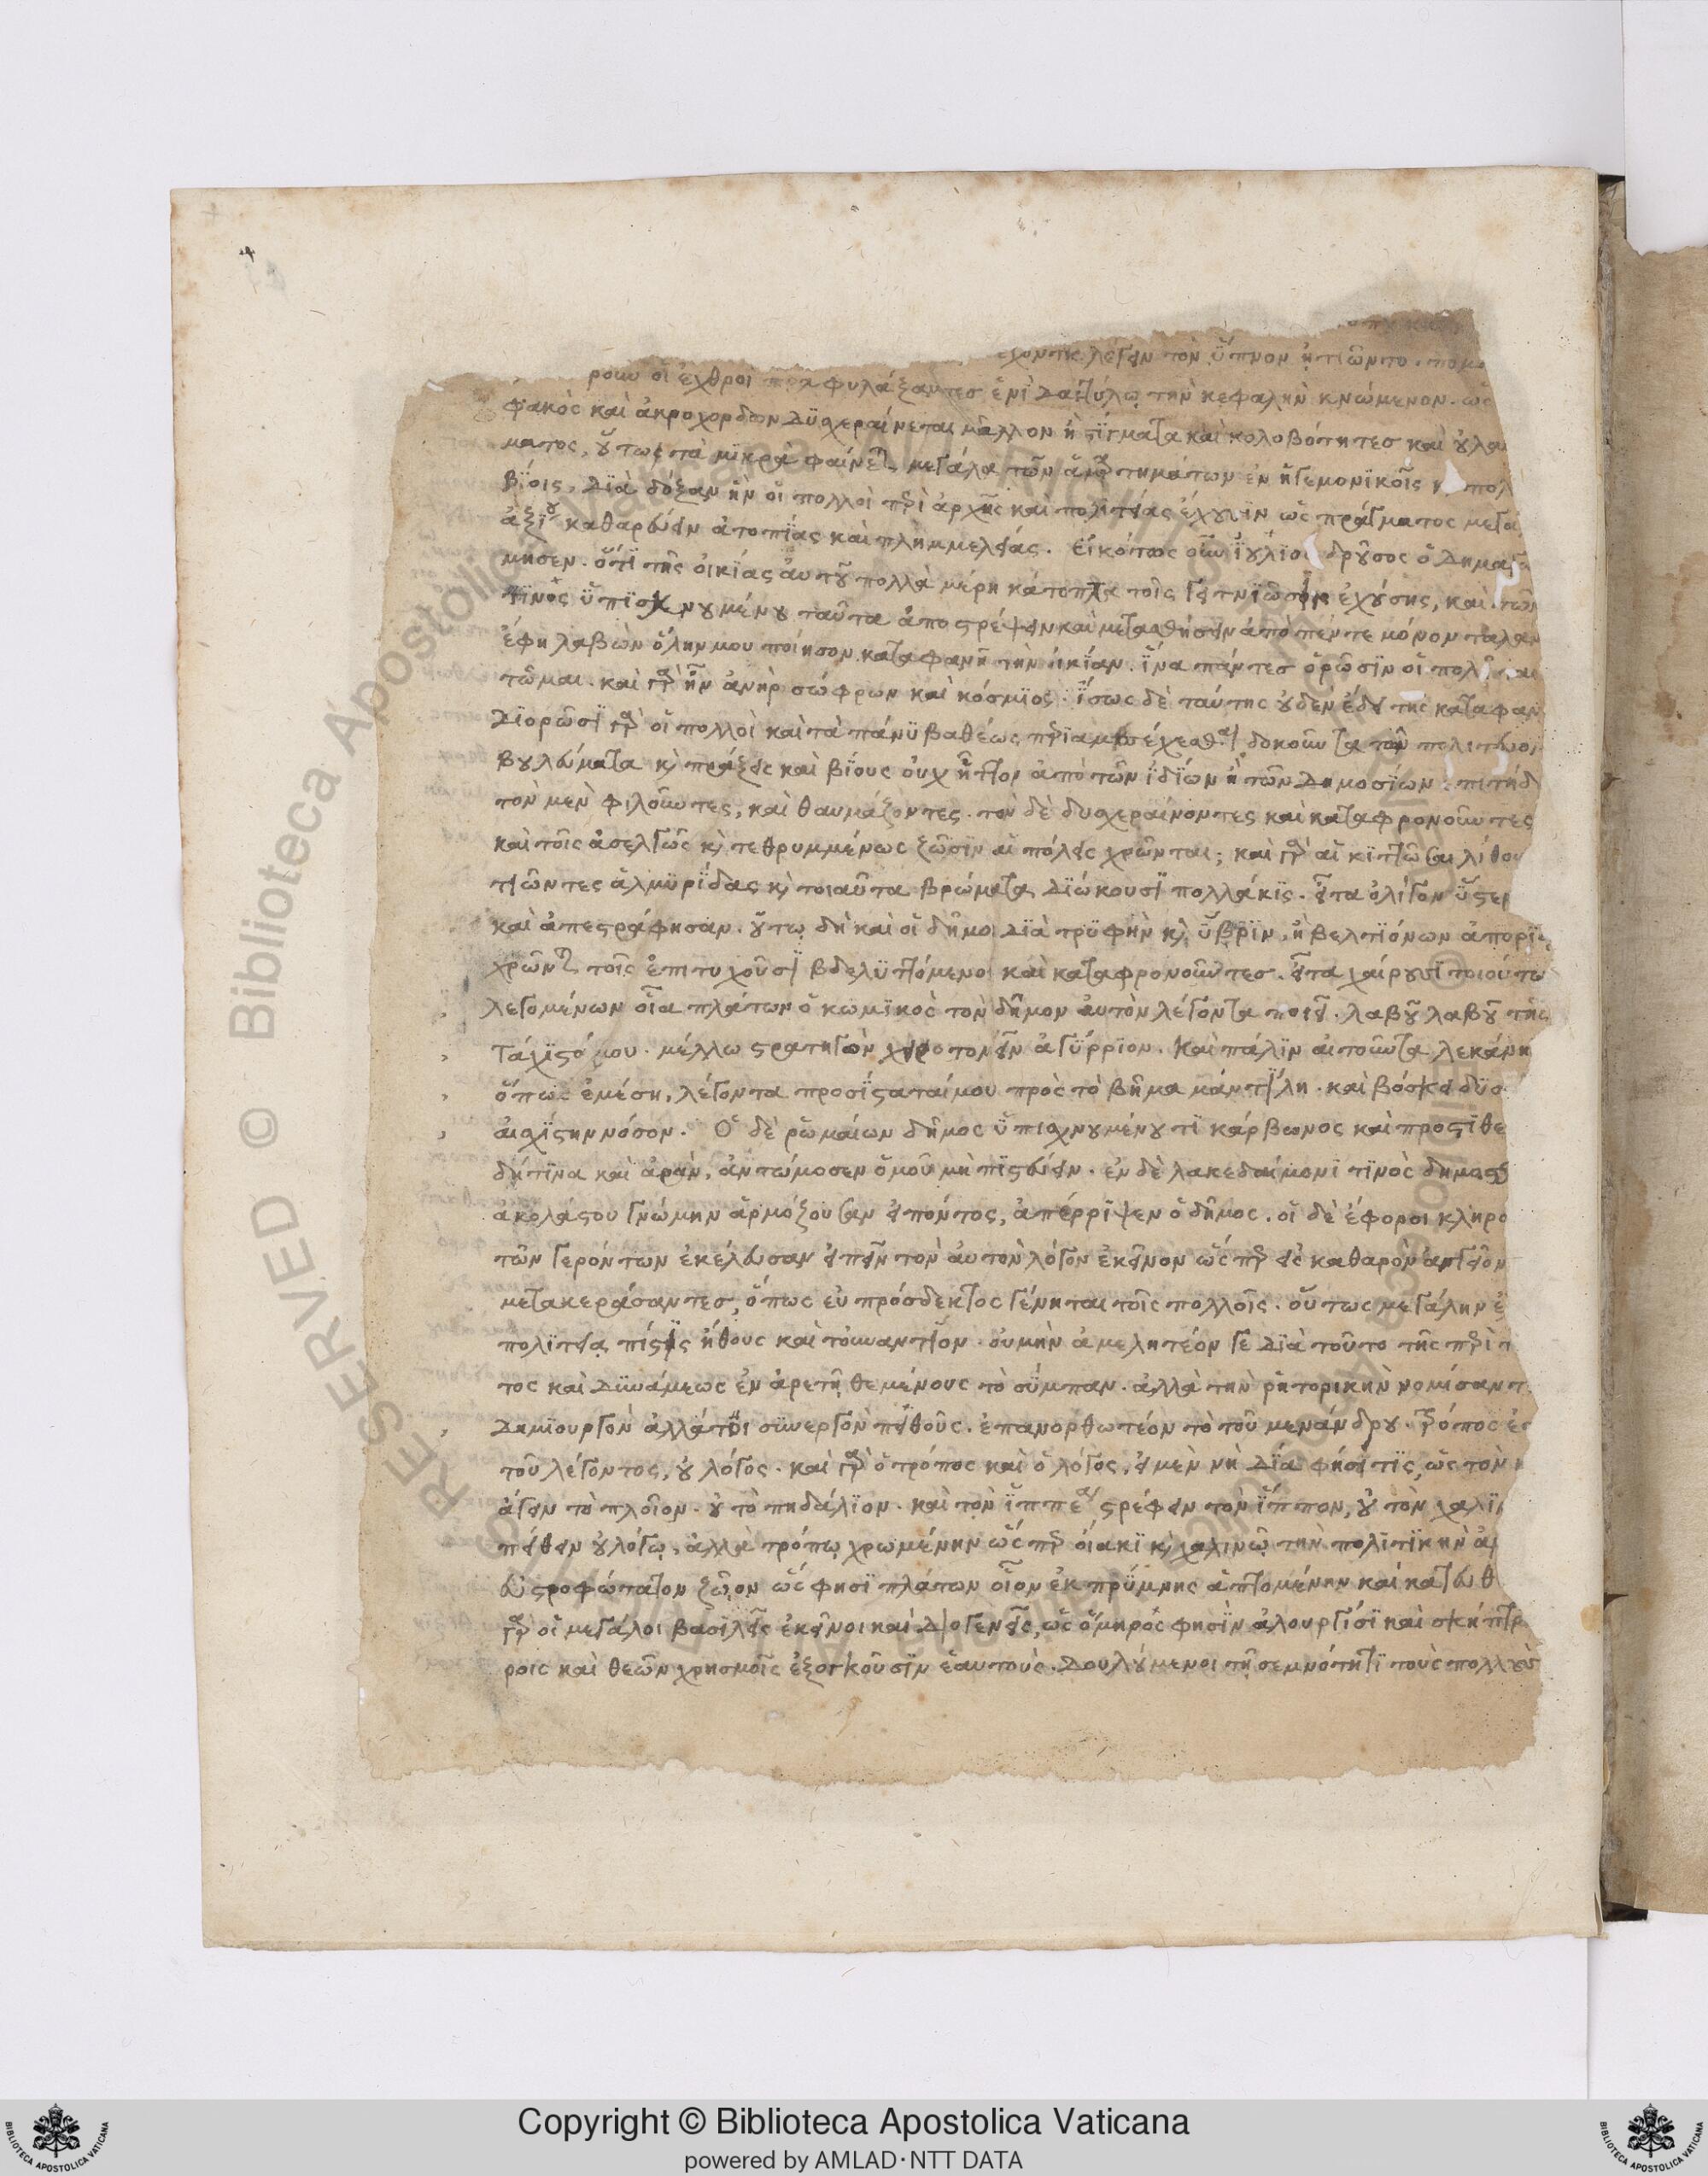 έχοντες λέγειν τὸν ὕπνον ᾐτιῶντο. πομ
οἱ ἐχθροὶ παραφυλάξαντες ἑνὶ δακτύλῳ τὴν κεφαλὴν κνώμενον. ὡς
φακὸς καὶ ἀκροχορδὼν δυσχεραίνεται μᾶλλον ἢ στίγματα καὶ κολοβότητες καὶ οὐλαὶ
ματος, οὕτως τὰ μικρὰ φαίνεται μεγάλα τῶν ἁμαρτημάτων ἐν ἡγεμονικοῖς πολ
βίοις, διὰ δόξαν ἣν οἱ πολλοὶ περὶ ἀρχῆς καὶ πολιτείας ἔχουσιν ὡς πράγματος μεγά
ἀξίου καθαρεύειν ἀτοπίας καὶ πλημμελείας. εἰκότως οὖν ἰούλιος δροῦσος ὁ δημαγ
μησεν. ὅτι τῆς οἰκίας αὐτοῦ πολλὰ μέρη κάτοπτα τοῖς γειτνιῶσιν ἐχούσης, καὶ τῶν
τινὸς ὑπισχνουμένου ταῦτα ἀποστρέψειν καὶ μεταθήσειν ἀπὸ πέντε μόνον ταλάν
ἔφη λαβὼν ὅλην μου ποίησον καταφανῆ τὴν οἰκίαν. ἵνα πάντες ὁρῶσιν οἱ πολῖται
τῶμαι. καὶ γὰρ ἦν ἀνὴρ σώφρων καὶ κόσμιος. ἴσως δὲ ταύτης οὐδὲν ἔδει τῆς καταφαν
διορῶσι γὰρ οἱ πολλοὶ καὶ τὰ πάνυ βαθέως περιαμπέχεσθαι δοκοῦντα τῶν πολιτευο
βουλεύματα καὶ πράξεις καὶ βίους οὐχ ἧττον ἀπὸ τῶν ἰδίων ἢ τῶν δημοσίων πιτηδ
τὸν μὲν φιλοῦντες, καὶ θαυμάζοντες. τὸν δὲ δυσχεραίνοντες καὶ καταφρονοῦντες
καὶ τοῖς ἀσελγῶς καὶ τεθρυμμένως ζῶσιν αἱ πόλεις χρῶνται; καὶ γὰρ αἱ κιττῶσαι λίθου
τιῶντες ἁλμυρίδας καὶ τοιαῦτα βρώματα διώκουσι πολλάκις. εἶτα ὀλίγον ὕστερ
καὶ ἀπεστράφησαν. οὕτω δὴ καὶ οἱ δῆμοι διὰ τρυφὴν καὶ ὕβριν, ἢ βελτιόνων ἀπορί
χρῶνται τοῖς ἐπιτυχοῦσι βδελυττόμενοι καὶ καταφρονοῦντες. εἶτα χαίρουσι τοιούτω
λεγομένων οἷα πλάτων ὁ κωμικὸς τὸν δῆμον αὐτὸν λέγοντα ποιεῖ. λαβοῦ λαβοῦ τῆς
τάχιστά μου. μέλλω στρατηγὸν χειροτονεῖν ἀγύρριον. καὶ πάλιν αἰτοῦντα λεκάνη
ὅπως ἐμέσῃ, λέγοντα προσίσταταί μου πρὸς τὸ βῆμα μάντιλη. καὶ βόσκει δυσ
αἰσχίστην νόσον. Ὁ δὲ ῥωμαίων δῆμος ὑπισχνουμένου τι κάρβωνος καὶ προστιθε
δή τινα καὶ ἀρὰν, ἀντώμοσεν ὁμοῦ μὴ πιστεύειν. ἐν δὲ λακεδαίμονι τινὸς δημοσ
ἀκολάστου γνώμην ἁρμόζουσαν εἰπόντος, ἀπέρριψεν ὁ δῆμος. οἱ δὲ ἔφοροι κληρο
τῶν γερόντων ἐκέλευσαν εἰπεῖν τὸν αὐτὸν λόγον ἐκεῖνον ὥσπερ εἰς καθαρὸν ἀγγεῖον
μετακεράσαντες, ὅπως εὐπρόσδεκτος γένηται τοῖς πολλοῖς. οὕτως μεγάλην ἐ
πολιτεία πίστις ἤθους καὶ τοὐναντίον. οὐ μὴν ἀμελητέον γε διὰ τοῦτο τῆς περὶ τ
τος καὶ δυνάμεως ἐν ἀρετῇ θεμένους τὸ σύμπαν. ἀλλὰ τὴν ῥητορικὴν νομίσαντ
δημιουργὸν ἀλλά τοι συνεργὸν πειθοῦς. ἐπανορθωτέον τὸ τοῦ μενάνδρου. τρόπος ἐσ
τοῦ λέγοντος, οὐ λόγος. καὶ γὰρ ὁ τρόπος καὶ ὁ λόγος, εἰ μὲν νὴ δία φήσει τις, ὡς τὸν
ἄγειν τὸ πλοῖον. οὐ τὸ πηδάλιον. καὶ τὸν ἱππέα στρέφειν τὸν ἵππον, οὐ τὸν χαλι
πείθειν οὐ λόγῳ, ἀλλὰ τρόπῳ χρωμένην ὥσπερ οἴακι καὶ χαλινῷ τὴν πολιτικὴν ἀρ
εὐστροφώτατον ζῷον ὥς φησι πλάτων οἷον ἐκ πρύμνης ἁπτομένην καὶ κατευθ
γὰρ οἱ μεγάλοι βασιλεῖς ἐκεῖνοι καὶ διογενεῖς, ὡς ὅμηρός φησιν ἁλουργίσι καὶ σκήπτρ
ροις καὶ θεῶν χρησμοῖς ἐξογκοῦσιν ἑαυτούς. δουλούμενοι τῇ σεμνότητι τοὺς πολλοὺς
Copyright © Biblioteca Apostolica Vaticana
powered by AMLAD·NTT DATA